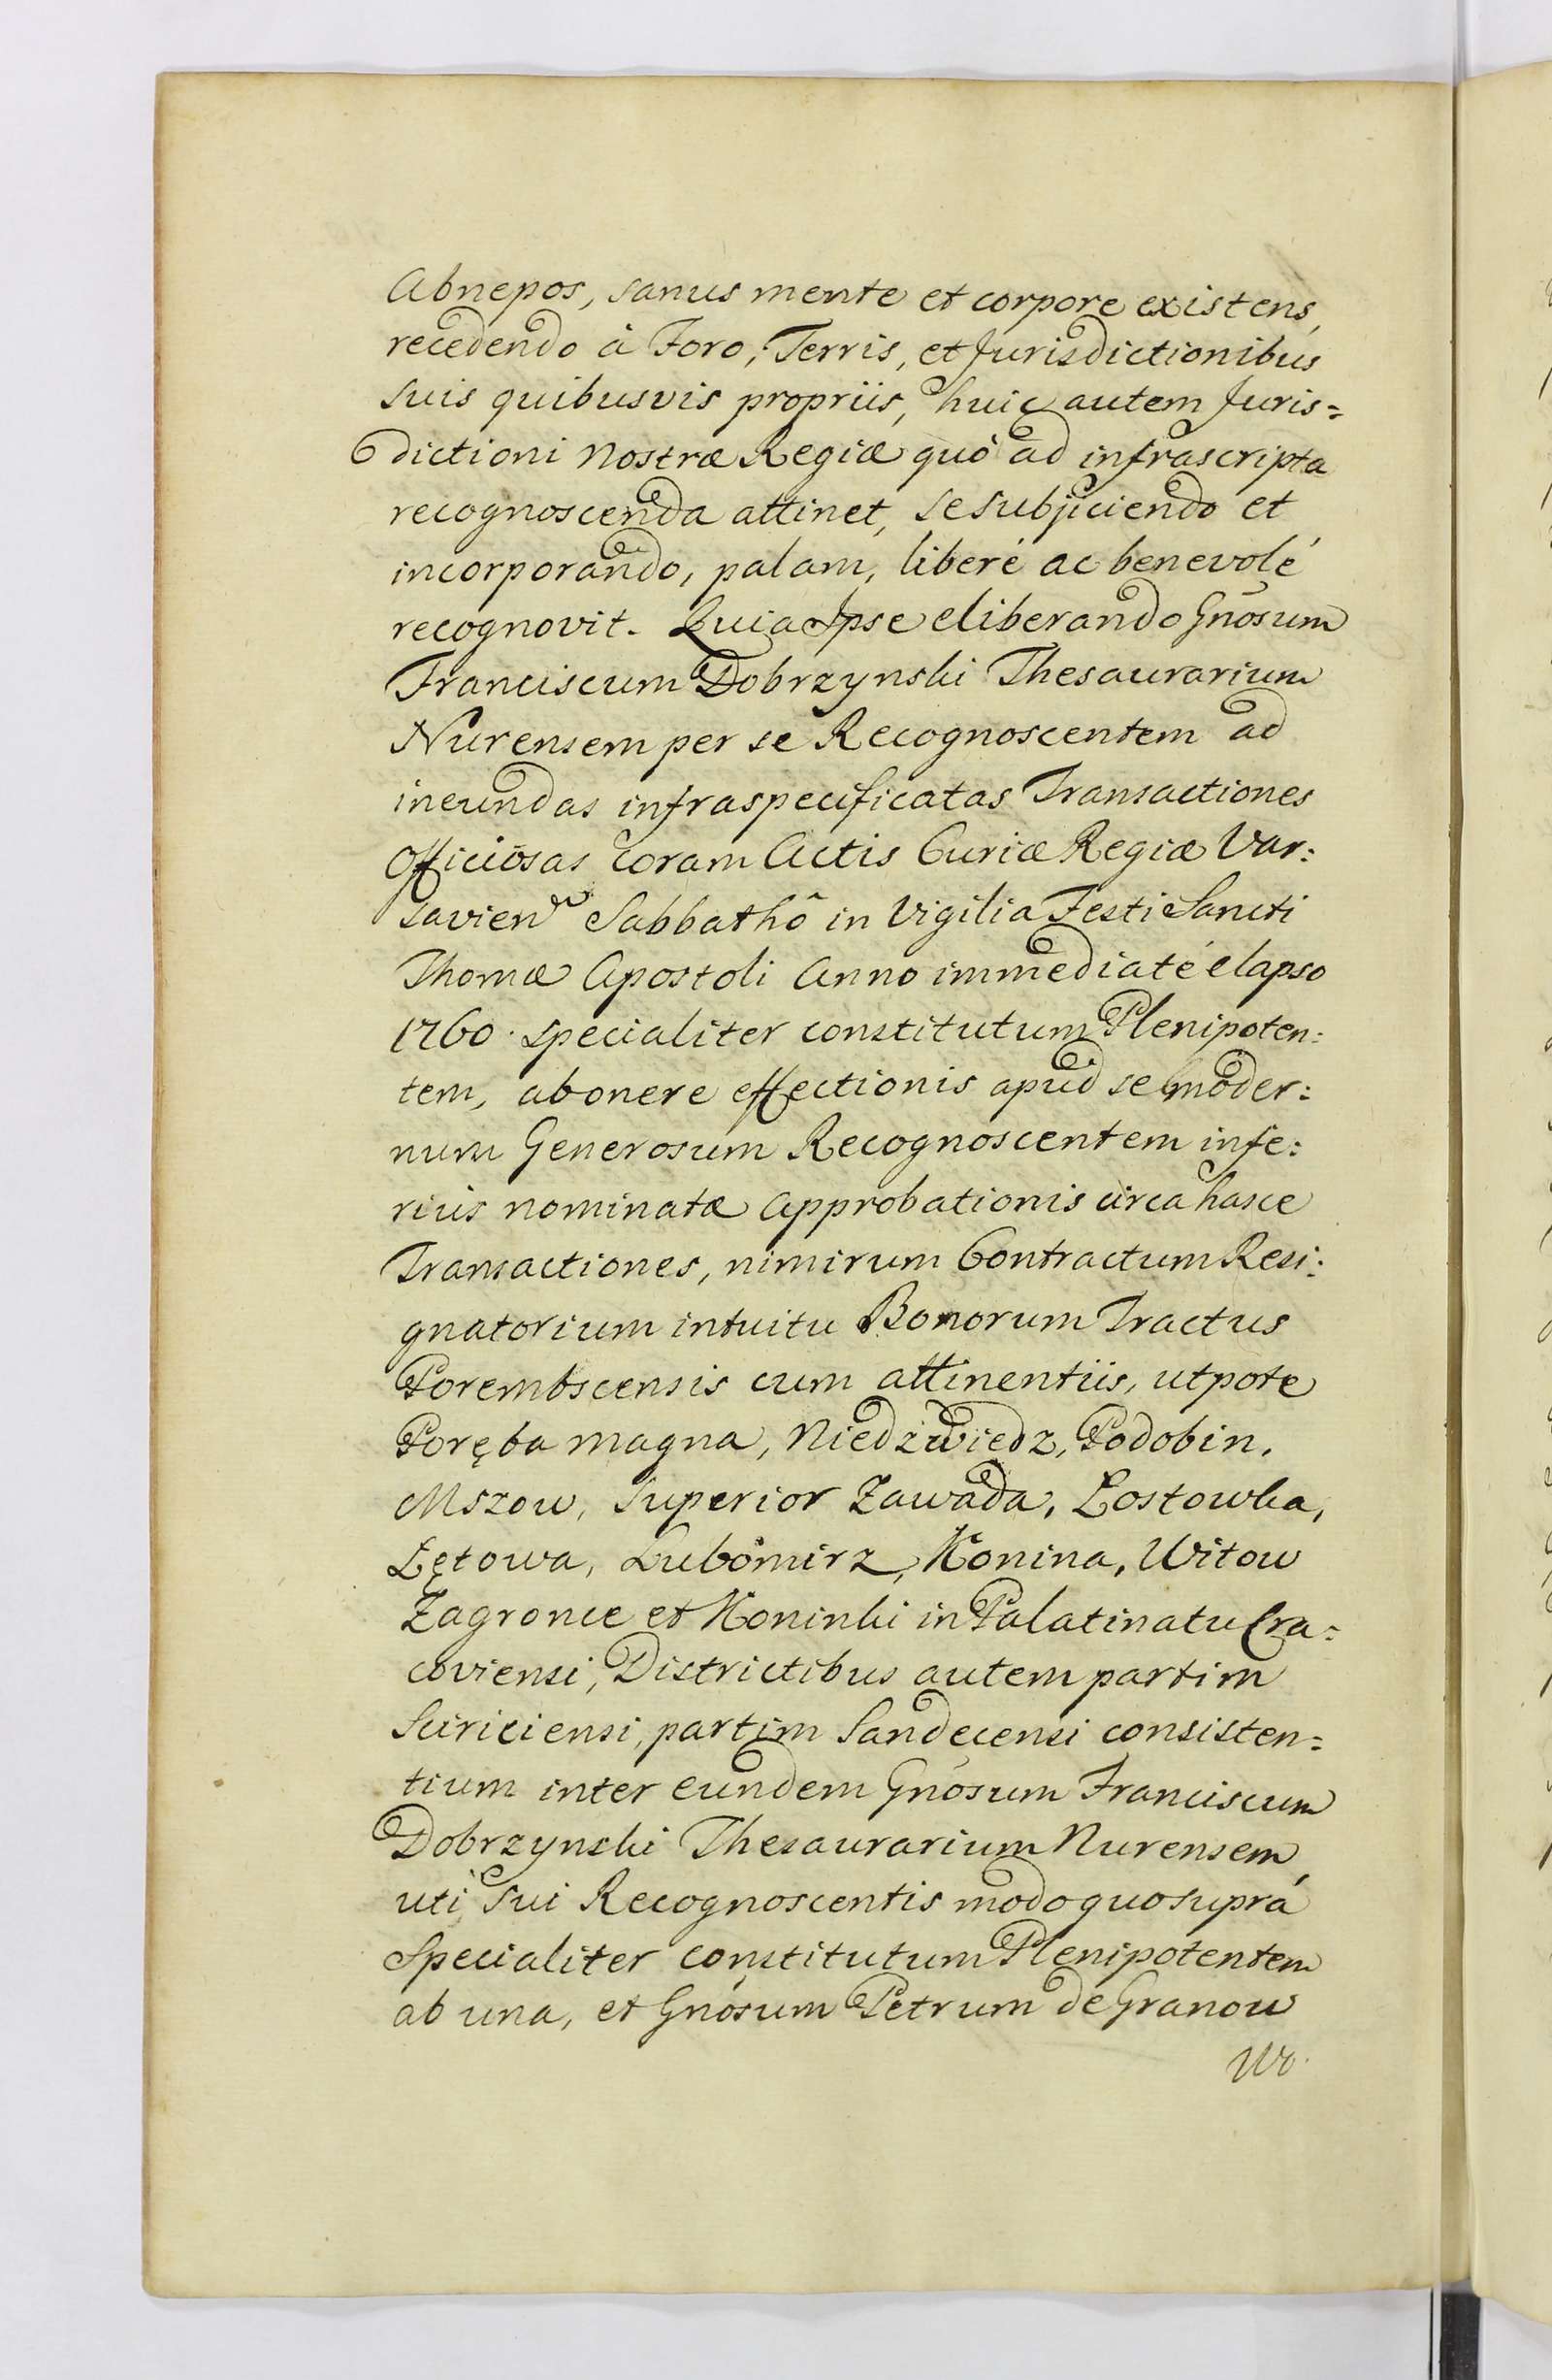 Abnepos, sanus mente et corpore existens,
recedendo à Foro, Terris, et Jurisdictionibus
suis quibusvis propriis, huic autem Juris=
dictioni Nostræ Regiæ quò ad infrascripta
recognoscenda attinet, se subjiciendo et
incorporando, palam, liberé ac benevolé
recognovit. Quia Ipse eliberando Gnosum
Franciscum Dobrzynski Thesaurarium
Nurensem per se Recognoscentem ad
ineundas infraspecificatas Transactiones
Officiosas coram Actis Curiæ Regiæ Var:
savien Sabbathô in Vigilia Festi Sancti
Thomæ Apostoli Anno immediaté elapso
1760. specialiter constitutum Plenipoten:
tem, ab onere effectionis apud se moder:
num Generosum Recognoscentem infe:
rius nominatæ Approbationis circa hasce
Transactiones, nimirum Contractum Resi:
gnatorium intuitu Bonorum Tractus
Porembscensis cum attinentiis, utpote
Poręba magna, Niedzwiedz, Podobin,
Mszow, Superior Zawada, Łostowka,
Łętowa, Lubomirz, Konina, Witow
Zagronie et Koninki in Palatinatu Cra=
coviensi, Districtibus autem partim
Sciriciensi, partim Sandecensi consisten=
tium inter eundem Gnosum Franciscum
Dobrzynski Thesaurarium Nurensem,
uti sui Recognoscentis modo quo suprá
Specialiter constitutum Plenipotentem
ab una, et Gnosum Petrum de Granow
Wo.